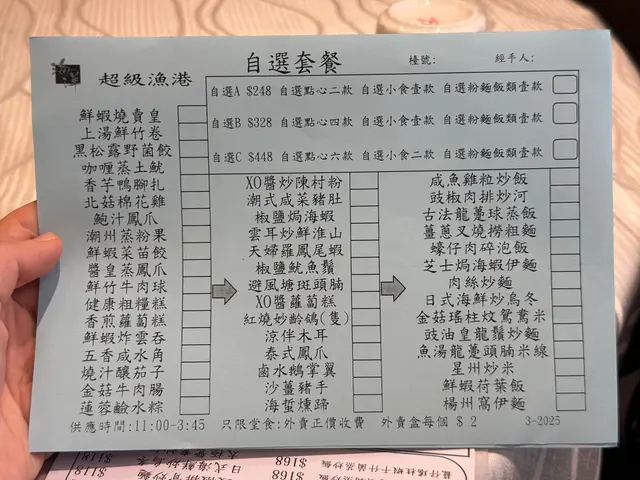 自選套餐
檯號:
經手人:
超級漁港
自選A $248 自選點心二款 自選小食壹款 自選粉麵飯類壹款
自選B $328 自選點心四款 自選小食壹款 自選粉麵飯類壹款
自選C $448 自選點心六款 自選小食二款 自選粉麵飯類壹款
鮮蝦燒賣皇
上湯鮮竹卷
黑松露野菌餃
咖喱蒸土魷
香芋鴨腳扎
北菇棉花雞
鮑汁鳳爪
潮州蒸粉果
鮮蝦菜苗餃
醬皇蒸鳳爪
鮮竹牛肉球
健康粗糧糕
香煎蘿蔔糕
鮮蝦炸雲吞
五香咸水角
燒汁釀茄子
金菇牛肉腸
蓮蓉鹼水粽
XO醬炒陳村粉
潮式咸菜豬肚
椒鹽焗海蝦
雲耳炒鮮淮山
天婦羅鳳尾蝦
椒鹽魷魚鬚
避風塘斑頭腩
XO醬蘿蔔糕
紅燒妙齡鴿(隻)
涼伴木耳
泰式鳳爪
鹵水鵝掌翼
沙薑豬手
海蜇燻蹄
咸魚雞粒炒飯
豉椒肉排炒河
古法龍躉球蒸飯
薑蔥叉燒撈粗麵
蠔仔肉碎泡飯
芝士焗海蝦伊麵
肉絲炒麵
日式海鮮炒烏冬
金菇瑤柱炆鴛鴦米
豉油皇龍鬚炒麵
魚湯龍躉頭腩米線
星州炒米
鮮蝦荷葉飯
楊州窩伊麵
供應時間:11:00-3:45 只限堂食:外賣正價收費 外賣盒每個 $ 2 3-2025
$168
$168
$118